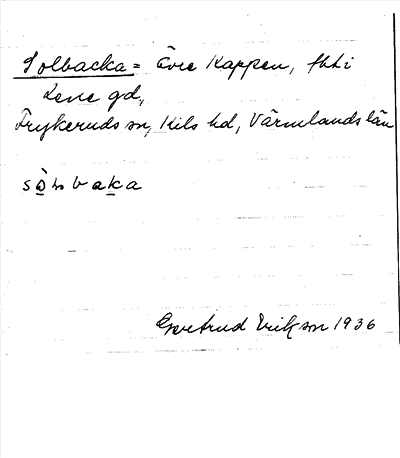 Solbacka = Övre Kappen, fbt i
Lene gd,
Frykeruds sn, Kils hd, Värmlands län
Gertrud Erikson 1936